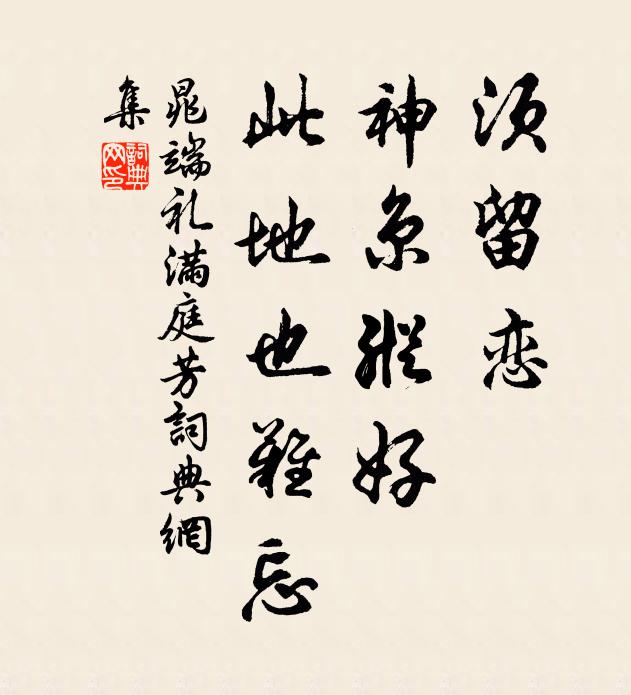 须留恋
神京縱好
此地也難忘
晁端礼滿庭芳詞典網
集
詞典
网印